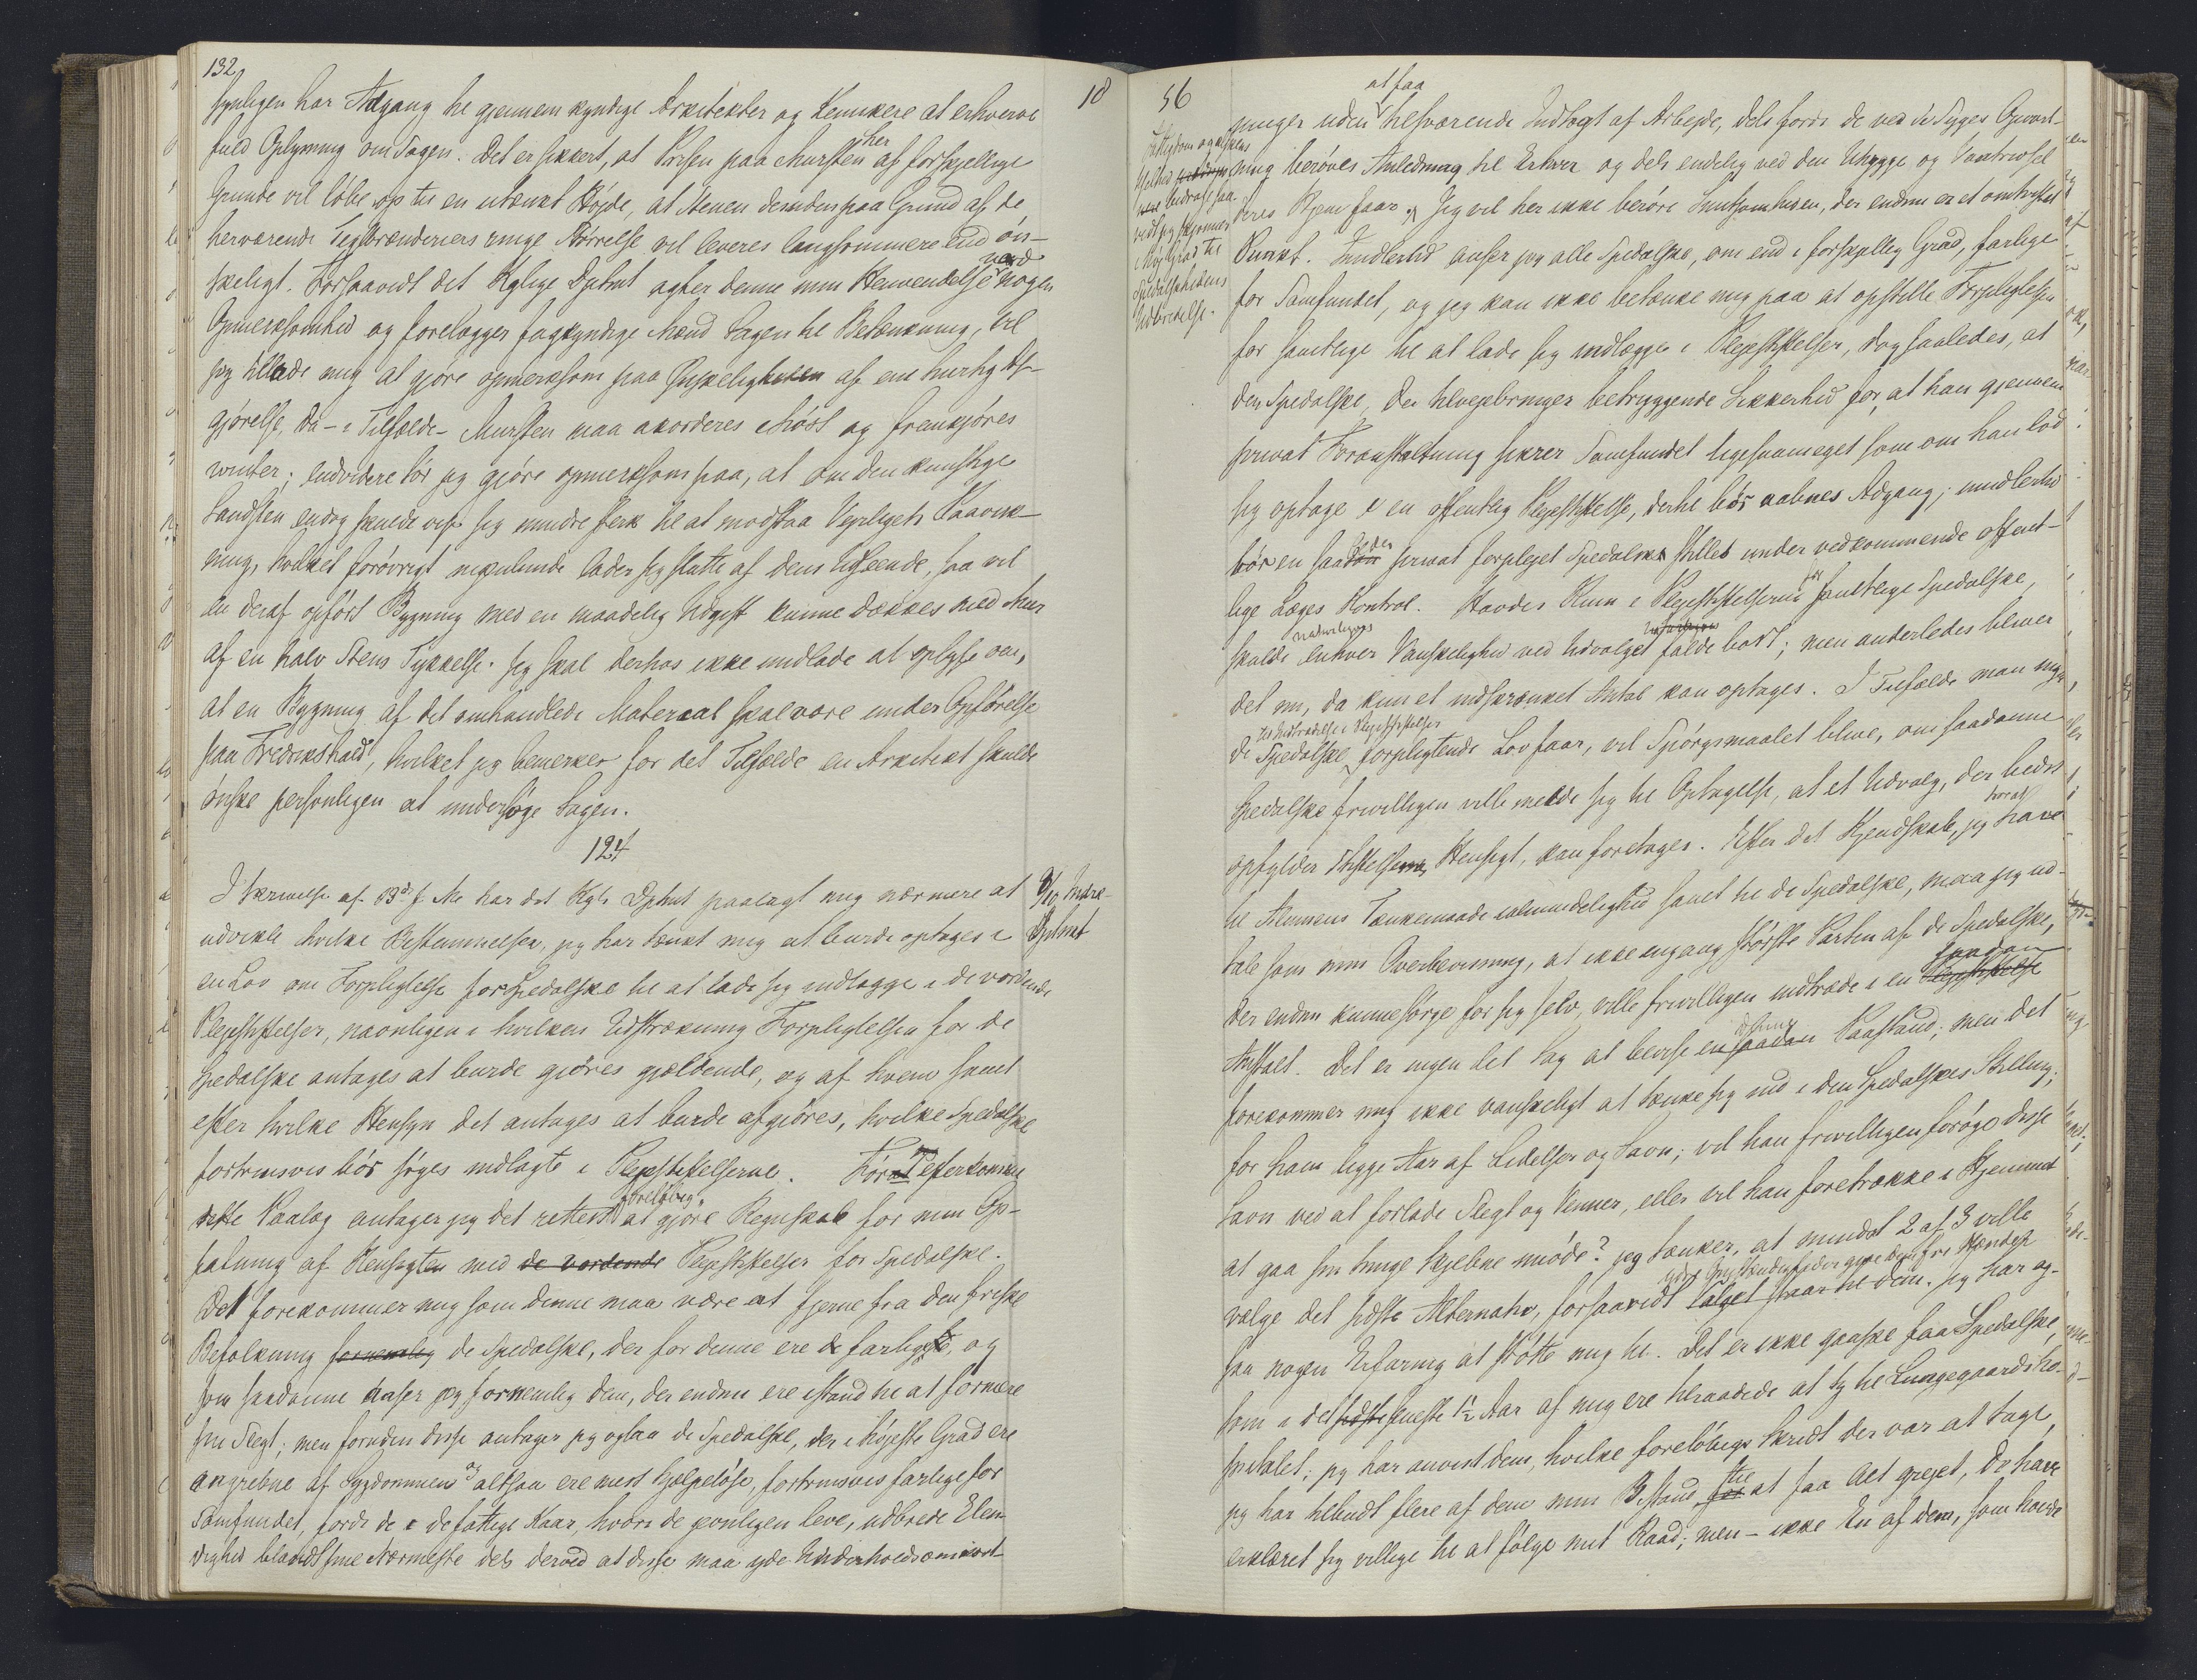 132
synligen har Adgang til gjennem kyndige Arkitekter og Kemikere at erhverve
fuld Oplysning om Sagen. Det er sikkert, at Prisen paa Mursten her af forskjellige
Grunde vil løbe op til en utænkt Højde, at Stenen desuden paa Grund af de
herværende Teglbrænderiers ringe Størrelse vil leveres langsommere end øn-
skeligt. Forsaavidt det Kglige Dptmt agter denne min Henvendelse værd nogen
Opmerksomhed og forelægger fagkyndige Mænd Sagen til Betænkning, vil
jeg tillade mig at gjøre opmerksom paa Ønskeligheden af en hurtig Af-
gjørelse, da - i Tilfælde - Mursten maa akorderes i Høst og fremkjøres
ivinter; endvidere bør jeg gjøre opmerksom paa, at om den kunstige
Sandsten endog skulde vise sig mindre sterk til at modstaa Vejrligets Paavirk-
ning, hvilket forøvrigt ingenlunde lader sig slutte af dens Udseende, saa vil
en deraf opført Bygning med en maadelig Udgift kunne dækkes med Mur
af en halv Stens Tykkelse. Jeg skal derhos ikke undlade at oplyse om,
at en Bygning af det omhandlede Material skal være under Opførelse
paa Fredrikshald, hvilket jeg bemerker for det Tilfælde en Arkitekt skulde
ønske personligen at undersøge Sagen.
124
I Skrivelse af 13de f. M. har det Kgl. Dptmt paalagt mig nærmere at
udvikle hvilke Bestemmelser, jeg har tænkt mig at burde optages i
en Lov om Forpligtelse for Spedalske til at lade sig indlægge i de vordende
Plejestiftelser, navnligen i hvilken Udstrækning Forpligtelsen for de
Spedalske antages at burde gjøres gjældende, og af hvem samt
efter hvilke Hensyn det antages at burde afgjøres, hvilke Spedalske
fortrinsvis bør søges indlagte i Plejestiftelserne. Før jeg efterkommer
dette Paalæg antager jeg det rettest foreløbig at gjøre Regnskab for min Op-
fatning af Hensigten med de vordende Plejestiftelser for Spedalske.
Det forekommer mig som denne maa være at fjerne fra den friske
Befolkning fornemlig de Spedalske, der for denne ere de farligste, og
som saadanne anser jeg fornemlig dem, der endnu ere istand til at formere
sin Slegt; men foruden disse antager jeg ogsaa de Spedalske, der i højeste Grad ere
angrebne af Sygdommen og altsaa ere mest hjælpeløse, fortrinsvis farlige for
Samfundet, fordi de i de fattige Kaar, hvori de gjerne leve, udbrede Elen-
dighed blandt sine Nærmeste dels derved at disse maa yde Underholdsomkost-
10
8/10 Indre-
Dptmt
56
ninger uden at faa tilsvarende Indtægt af Arbejde, dels fordi de ved de Syges Opvart-
ning berøves Anledning til Erhverv og dels endelig ved den Uhygge og Vantrivsel
deres Hjem faar. Jeg vil her ikke berøre Smitsomheden, der endnu er et omtvistet
Punkt. Imidlertid anser jeg alle Spedalske, om end i forskjellig Grad, farlige
for Samfundet, og jeg kan ikke betænke mig paa at opstille Forpligtelsen
for samtlige til at lade sig indlægge i Plejestiftelser, dog saaledes, at
den Spedalske, der tilvejebringer betryggende Sikkerhed for, at han gjennem
privat Foranstaltning sikrer Samfundet ligesaameget som om han lod
sig optage i en offentlig Plejestiftelse, dertil bør aabnes Adgang; imidlertid
bør en saadan privat forplejet Spedalsk stilles under vedkommende offent-
lige Læges Kontrol. Havdes Rum i Plejestiftelserne for samtlige Spedalske,
skulde naturligvis enhver Vanskelighed ved Udvalget falde bort; men anderledes bliver
det nu, da kun et indskrænket Antal kan optages. I Tilfælde man ingen
de Spedalske til Indtrædelse i Plejestiftelser forpligtende Lov faar, vil Spørgsmaalet blive, om saadanne
Spedalske frivilligen ville melde sig til Optagelse, at et Udvalg, der bedst
opfylder Stiftelsens Hensigt, kan foretages. Efter det Kjendskab, jeg tror at have
til Almuens Tænkemaade i almindelighed samt til de Spedalske, maa jeg ud-
tale som min Overbevisning, at ikke engang største Parten af de Spedalske,
der endnu kunne sørge for sig selv, ville frivilligen indtræde i en saadan Plejestiftelse
Anstalt. Det er ingen let Sag at bevise en saadan Paastand; men det
forekommer mig ikke vanskeligt at tænke sig ind i den Spedalskes Stilling;
for ham ligge Aar af Lidelser og Savn; vil han frivilligen forøge disse
Savn ved at forlade Slegt og Venner, eller vil han foretrække i Hjemmet
at gaa sin tunge Skjebne imøde? jeg tænker, at mindst 2 af 3 ville
vælge det sidste Alternativ, forsaavidt Valget staar til dem. Jeg har og-
saa nogen Erfaring at støtte mig til. Det er ikke ganske faa Spedalske,
som i det sidste seneste 1½ Aar af mig ere tilraadede at ty til Lungegaardsho-
spitalet; jeg har anvist dem, hvilke foreløbige Skridt der var at tage,
jeg har tilbudt flere af dem min Bistand til at faa Alt grejet, de have
erklæret sig villige til at følge mit Raad; men - ikke En af dem, som havde
Fattigdom og
vidt jeg skjønner
i høj Grad til
Spedalskhedens
Udbredelse.